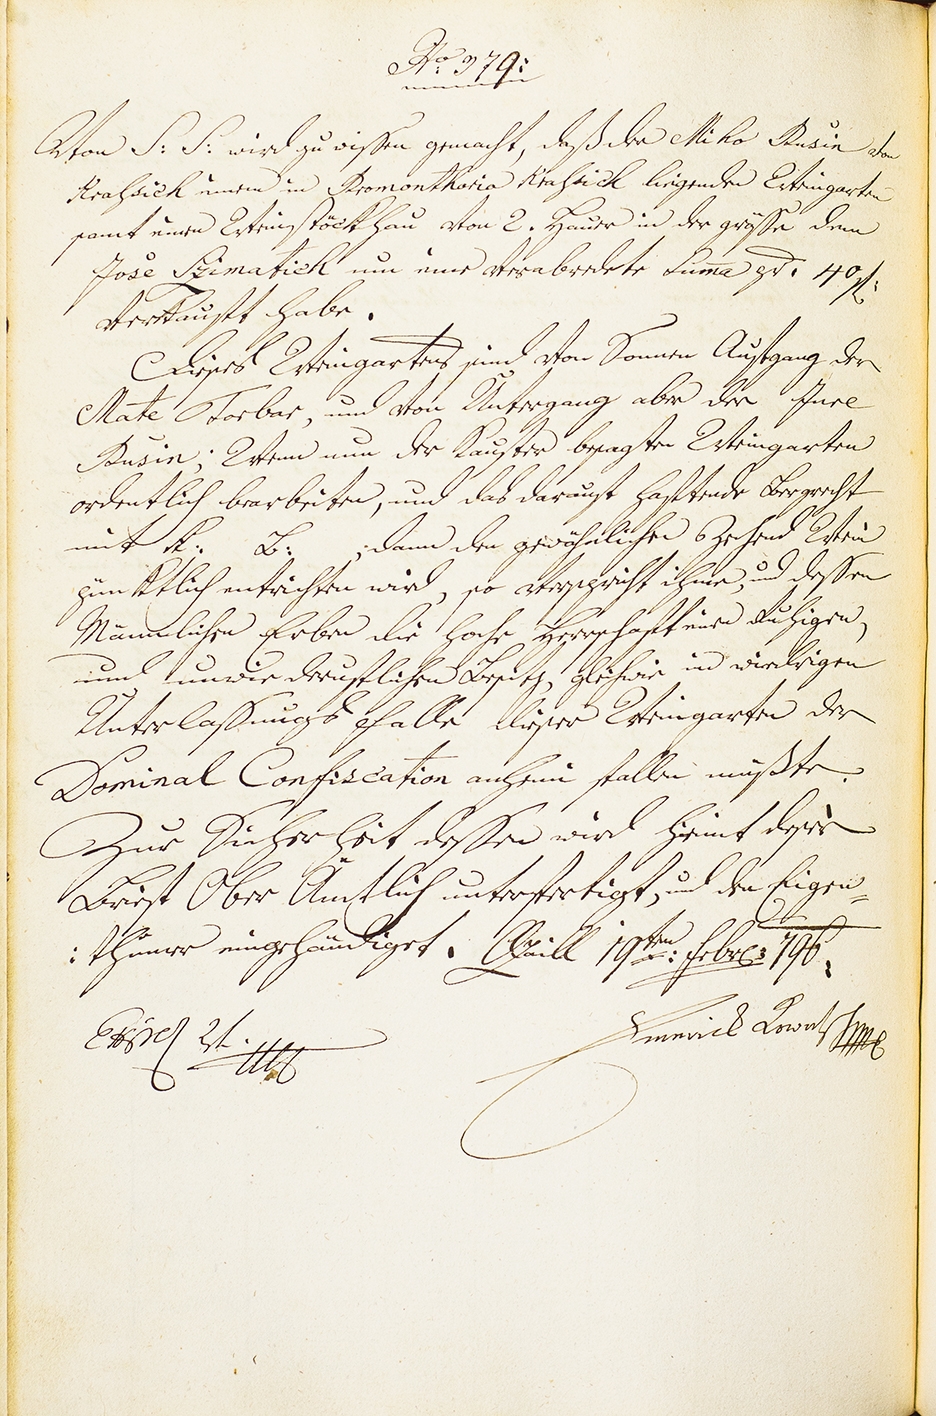 No: 379:
Von S: S: wird zu wissen gemacht, daß der Miho Busin von
Krahsich einem in Promonthoria Krahsich liegenden Weingarten
samt einen Weinstöckhau von 2. Hauer in der grösse dem
Jose Szimatich um eine verabredete Suma pr. 40 f:
verkauft habe.
Dieses Weingartens sind von Sonnen Aufgang der
Mate Torbar, und von Untergang aber der Jure
Busin; Wenn nun der Kaufer besagten Weingarten
ordentlich bearbeiten, und das darauf haftende Bergrecht
mit K: B: , dann den gewöhnlichen Zehend Wein
pünktlich entrichten wird, so verspricht ihme, und dessen
Männlichen Erben die hohe Herrschaft einen Ruhigen,
und unwiederruflichen Besitz, gleichwie in wiedrigen
Unterlassungs Falle dieser Weingarten der
Dominal Confiscation anheim fallen müßte.
Zur Sicherheit dessen wird hiemit dieser
Brief Ober Amtlich unterfertigt, und den Eigen=
:thümer eingehändiget. 19ten: Febr: 796.
Emerick Kovats